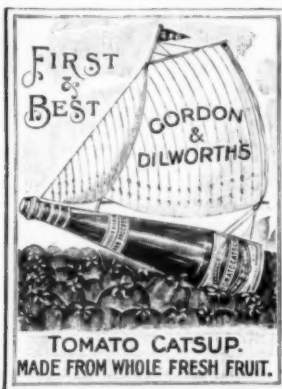 FIRST
&
BEST
GORDON
&
DILWORTH'S
TOMATO CATSUP.
MADE FROM WHOLE FRESH FRUIT.